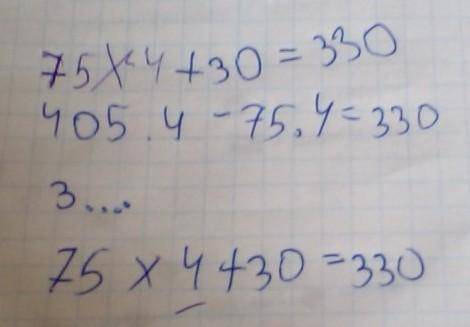 75 x 4 + 30 = 330
405.4 - 75.4 = 330
3....
75 x 4 + 30 = 330